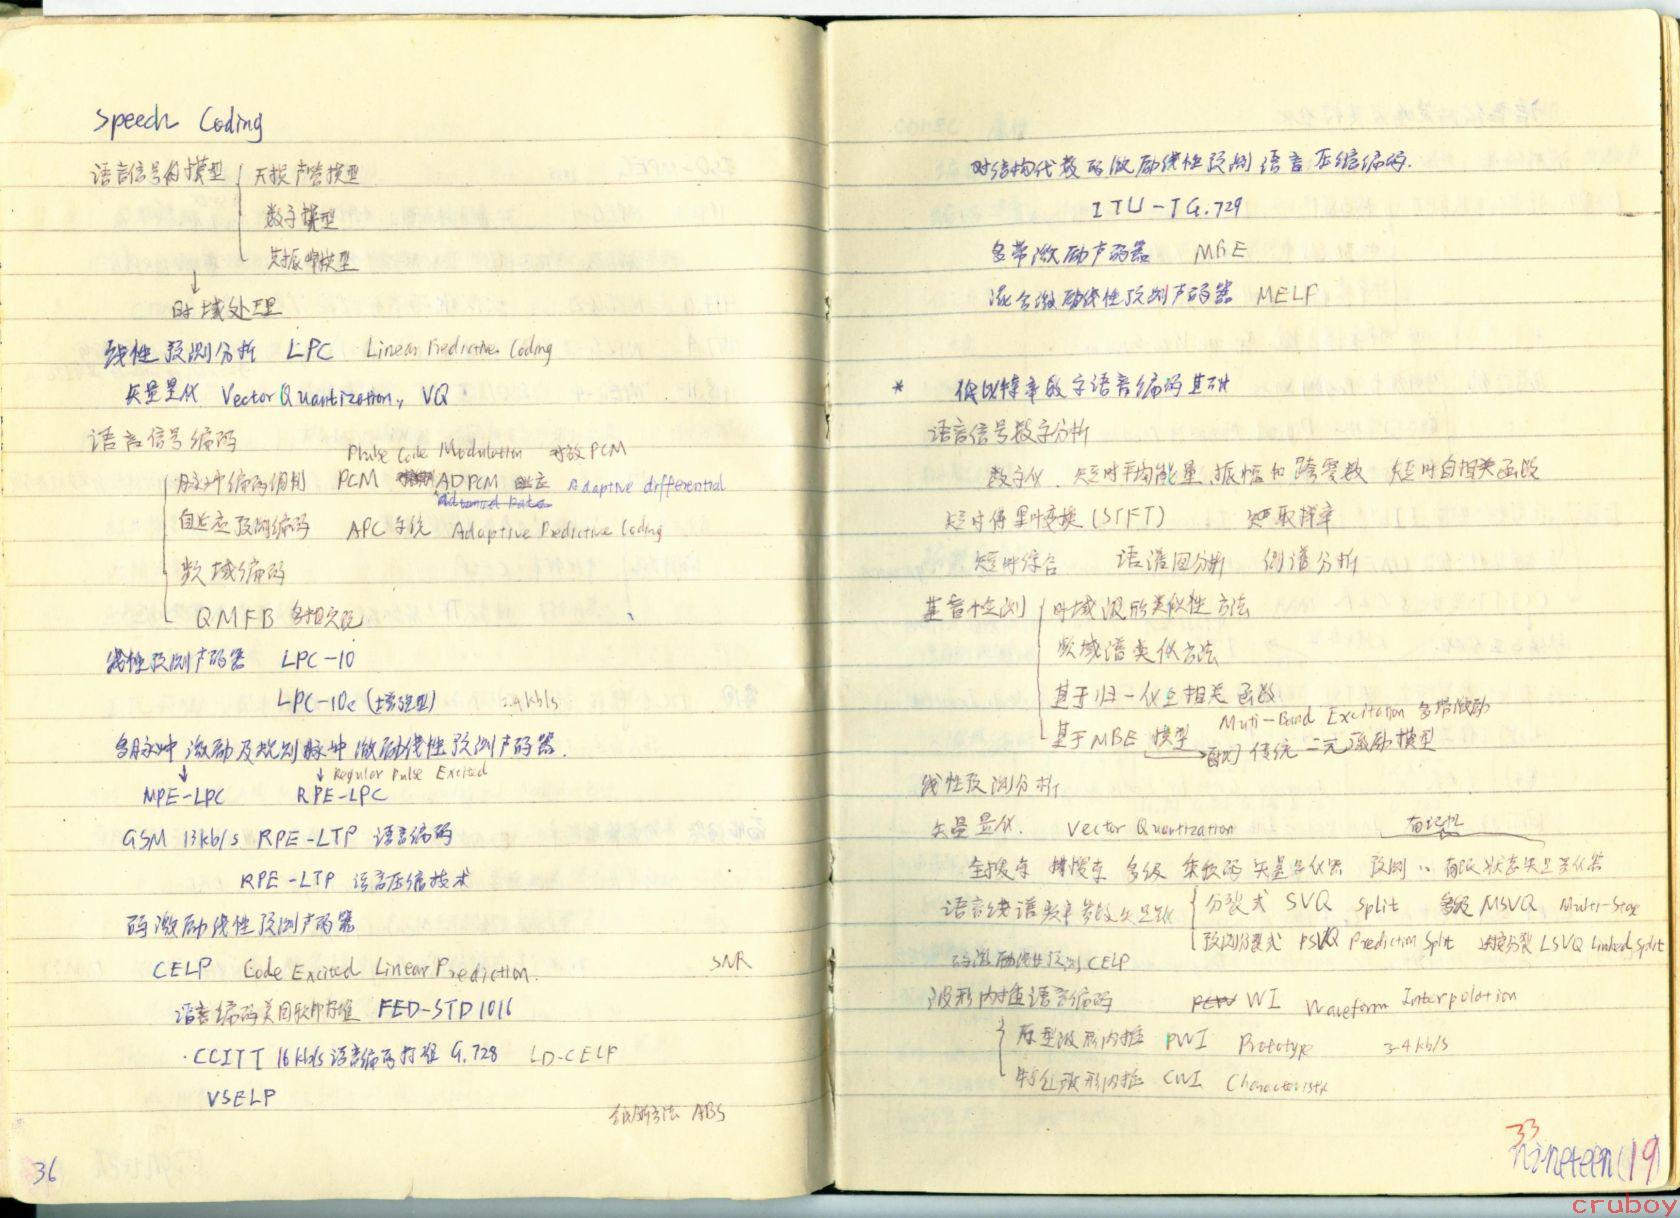 Speech Coding
语音信号的模型 无损声管模型
数字模型
共振峰模型
时域处理
线性预测分析 LPC Linear Predictive Coding
矢量量化 Vector Quantization, VQ
语音信号编码
Pluse Code Modulation PCM
脉冲编码调制 PCM ADPCM 自适应 Adaptive differential
自适应预测编码 APC 系统 Adaptive Predictive Coding
频域编码
QMFB
线性预测声码器 LPC-10
LPC-10e (增强型) 2.4kb/s
多脉冲激励及规则脉冲激励线性预测声码器.
Regular Pulse Excited
MPE-LPC RPE-LPC
GSM 13kb/s RPE-LTP 语音编码
RPE-LTP 语音压缩技术
码激励线性预测声码器
CELP Code Excited Linear Prediction. SNR
语音编码美国联邦标准 FED-STD1016
·CCITT 16kb/s 语音编码标准 G.728 LD-CELP
VSELP
ABS
36
对结构代数码激励线性预测语音压缩编码.
ITU-T G.729
多带激励声码器 MBE
混合激励线性预测声码器 MELP
* 低比特率数字语音编码基础
语音信号数字分析
数字化. 短时平均能量.振幅和跨零数 短时自相关函数
短时傅里叶变换(STFT) 取样率
短时综合 语谱图分析 倒谱分析
基音检测 时域波形类似性方法
频域谱类似方法
基于归一化互相关函数
Muti-Band Excitation 多带激励
基于MBE 模型 传统二元激励模型
线性预测分析
矢量量化. Vector Quantization
全搜索 树搜索 多级 乘积码矢量量化器 预测 〃 有限状态矢量量化器
语音线谱频率参数矢量量化 分裂式 SVQ Split 多级 MSVQ Multi-Stage
预测分裂式 PSVQ Prediction Split 连接分裂 LSVQ Linked Split
码激励线性预测 CELP
波形内插语音编码 WI Waveform Interpolation
原型波形内插 PWI Prototype 3-4kb/s
特征波形内插 CWI Characteristic
33
nineteen(19)
cruboy